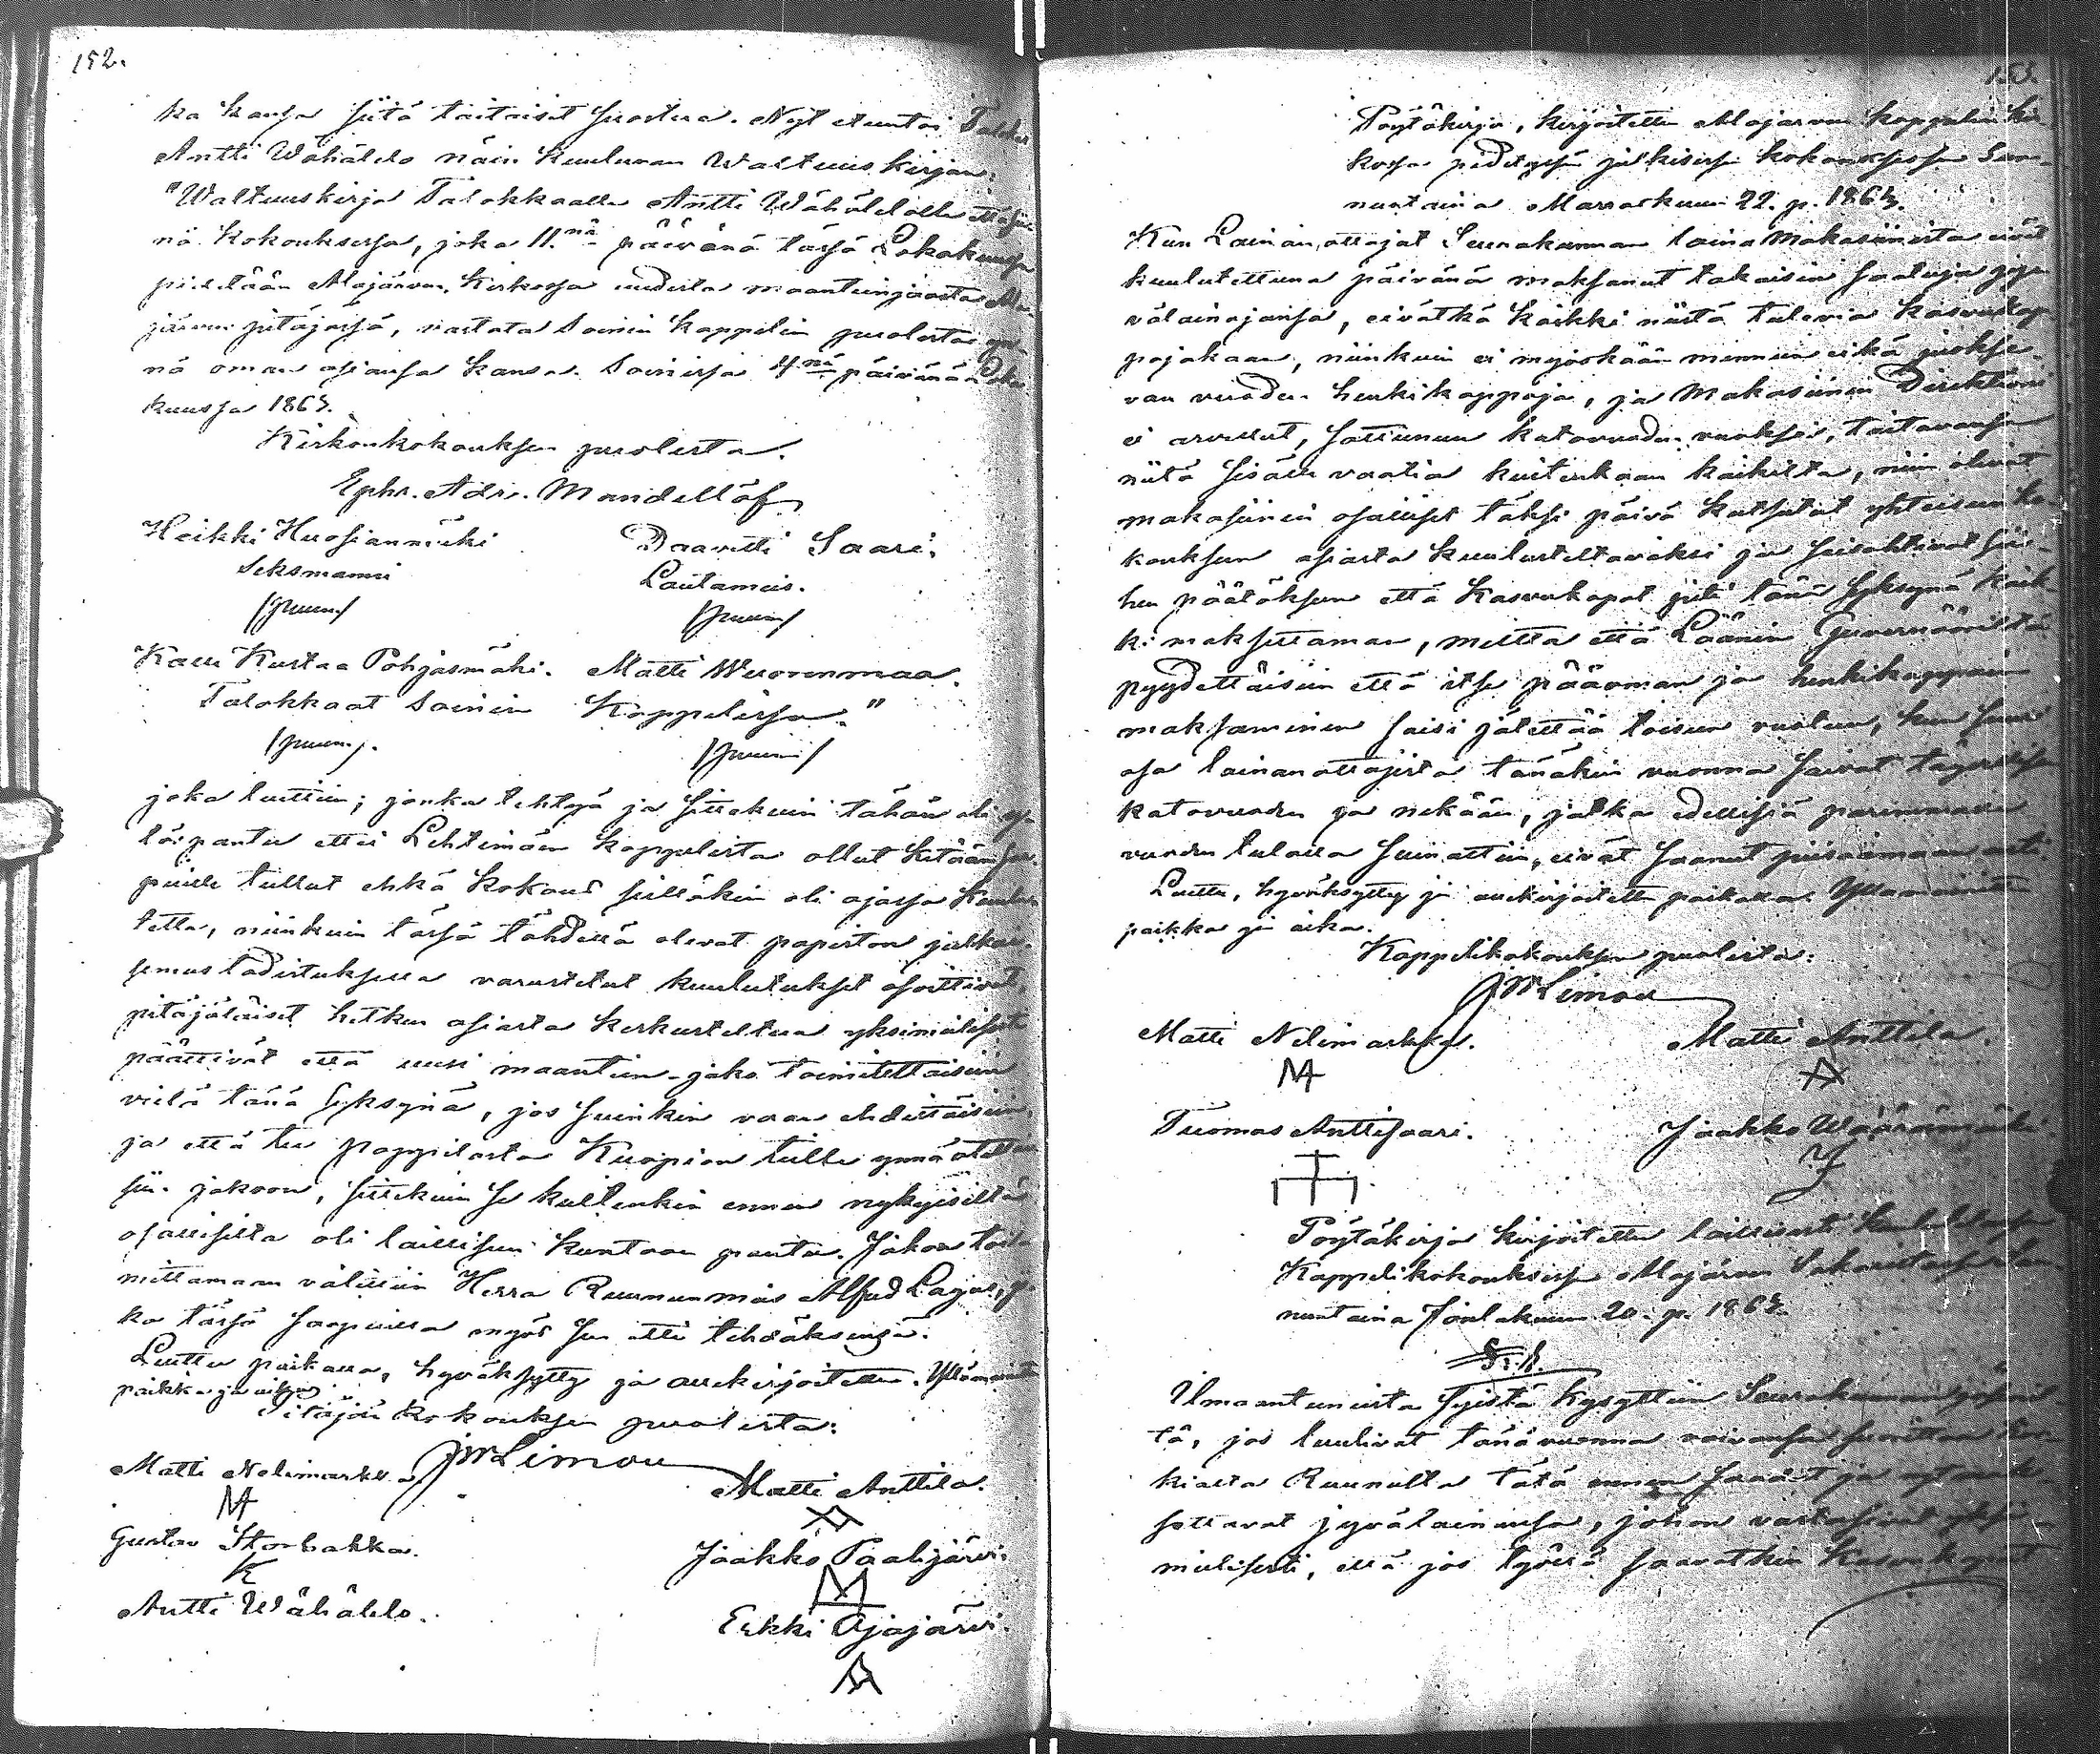 152.
ka kansa siitä taitaisit suostua. Nyt etuutoi Talokas
Antti Wähälelo näin kuuluvan Waltuus kirjan:
"Waltuuskirja Talokkaalle Antti Wähälelolle
nä kokouksessa, joka 11.nä päivänä tässä Lokakuussa
pidetään Alajärven kirkossa uudesta maanteinjaosta Ala-
järven pitäjässä, vastata Soinin kappelin puolesta
nä oman asiansa kansa. Soinissa 4.nä päivänä Loka
kuussa 1863.
Kirkonkokouksen puolesta.
Ephr. Adr. Mandellöf
Heikki Huosianmäki Daavetti Saari.
Seksmanni Lautamies.
/puum/ /puum/
Kalle Kustaa Pohjasmäki. Matti Wuorenmaa.
Talokkaat Soinin Kappelissa."
/puum/. /puum/
joka luettiin; jonka tehtyä ja sittekuin tähän oli
pantu ettei Lehtimäen kappelista ollut ketään
puille tullut ehkä kokous silläkin oli ajassa kuulu
tettu, niinkuin tässä tähdellä olevat papiston julkai-
semus todistuksella varustetut kuulutukset osoittivat,
pitäjäläiset hetken asiasta keskusteltua yksimielisesti
päättivät että uusi maantien-jako toimitettaisiin
vielä tänä syksynä, jos suinkin vaan ehdittäisiin,
ja että tie pappilasta Kuopion tielle ynnä otettai
siin jakoon, sittekuin se kuitenkin ennen nykyisiltä
osallisilta oli lailliseen kuntoon pantu. Jakoa toi
mittamaan välittiin Herra Ruununmies Alfred Lagus, jo
ka tässä saapuilla myös sen otti tehdäksensä.
Luettu paikalla, hyväksytty ja allekirjoitettu. Yllämainittu
paikka ja aika.
Pitäjän kokouksen puolesta:
JW Limon
Matti Nelimarkka Matti Anttila.
Gustav Storbakka. Jaakko Paalijärvi.
Antti Wähälelo. Erkki Ajajärvi.
153.
Pöytäkirja, kirjoitettu Alajärven kappelin kir
kossa pidetyssä julkisessa kokouksessa Sun-
nuntaina Marraskuun 22. p. 1863.
Kun Lainan ottajat Seurakunnan laina Makasiinista eivät
kuulutettuna päivänä maksanut takaisin saatuja jy-
välainojansa, eivätkä kaikki niistä tulevia kasvukap
pojakaan, niinkuin ei myöskään mennein eikä juokse-
van vuoden henkikappoja, ja Makasiinin Direktioni
ei arvellut, sattuneen katovuoden vuoksi, taitavansa
niitä sisälle vaatia kuitenkaan kaikilta, niin olivat
makasiinin osalliset täksi päivä kutsutut yhteiseen ko
kouksen asiasta kuulusteltavaksi ja seisahtivat sii-
hen päätöksen että kasvukapat piti tänä syksynä kaik-
ki maksettaman, mutta että Läänin Guvernööristä
pyydettäisiin että itse pääoman ja henkikappain
maksaminen saisi jätettää toiseen vuoteen, kun suuri
osa lainanottajista tänäkin vuonna saivat täydellisen
katovuoden ja nekään, jotka edellisiä paremman
vuoden tulolla siunattiin, eivät saanut piisaamaan asti.
Luettu, hyväksytty ja allekirjoitettu paikalla. Yllämainittu
paikka ja aika.
Kappelikokouksen puolesta:
JW Limon
Matti Nelimarkka. Matti Anttila.
Tuomas Anttisaari. Jaakko Wäärämäki.
Pöytäkirja kirjoitettu laillisesti kuulutetussa
Kappelikokouksessa Alajärven Sakaristossa Sun
nuntaina Joulukuun 20. p. 1863.
§. 1.
Ilmaantuneista syistä kysyttiin Seurakunnan jäsenil
tä, jos luulivat tänä vuonna voivansa suorittaa Kor
kialta Ruunulta tätä ennen saadut ja nyt mak
settavat jyvälainansa, johon vastasivat yksi
mielisesti, että jos työllä saavatkin kasvukapat